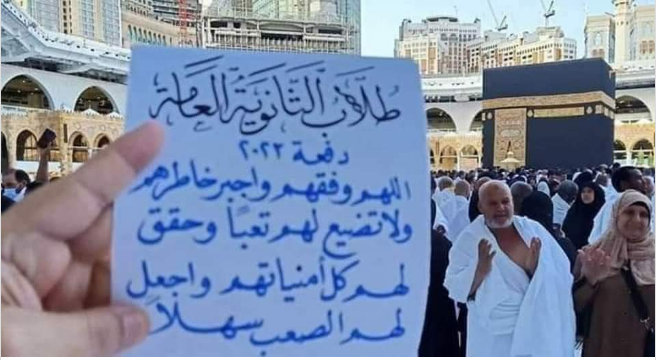 طلاب الثانوية العامة
دفعة ٢٠٢٢
اللهم وفقهم واجبر خاطرهم
ولا تضيع لهم تعبًا وحقق
لهم كل أمنياتهم واجعل
لهم الصعب سهلاً